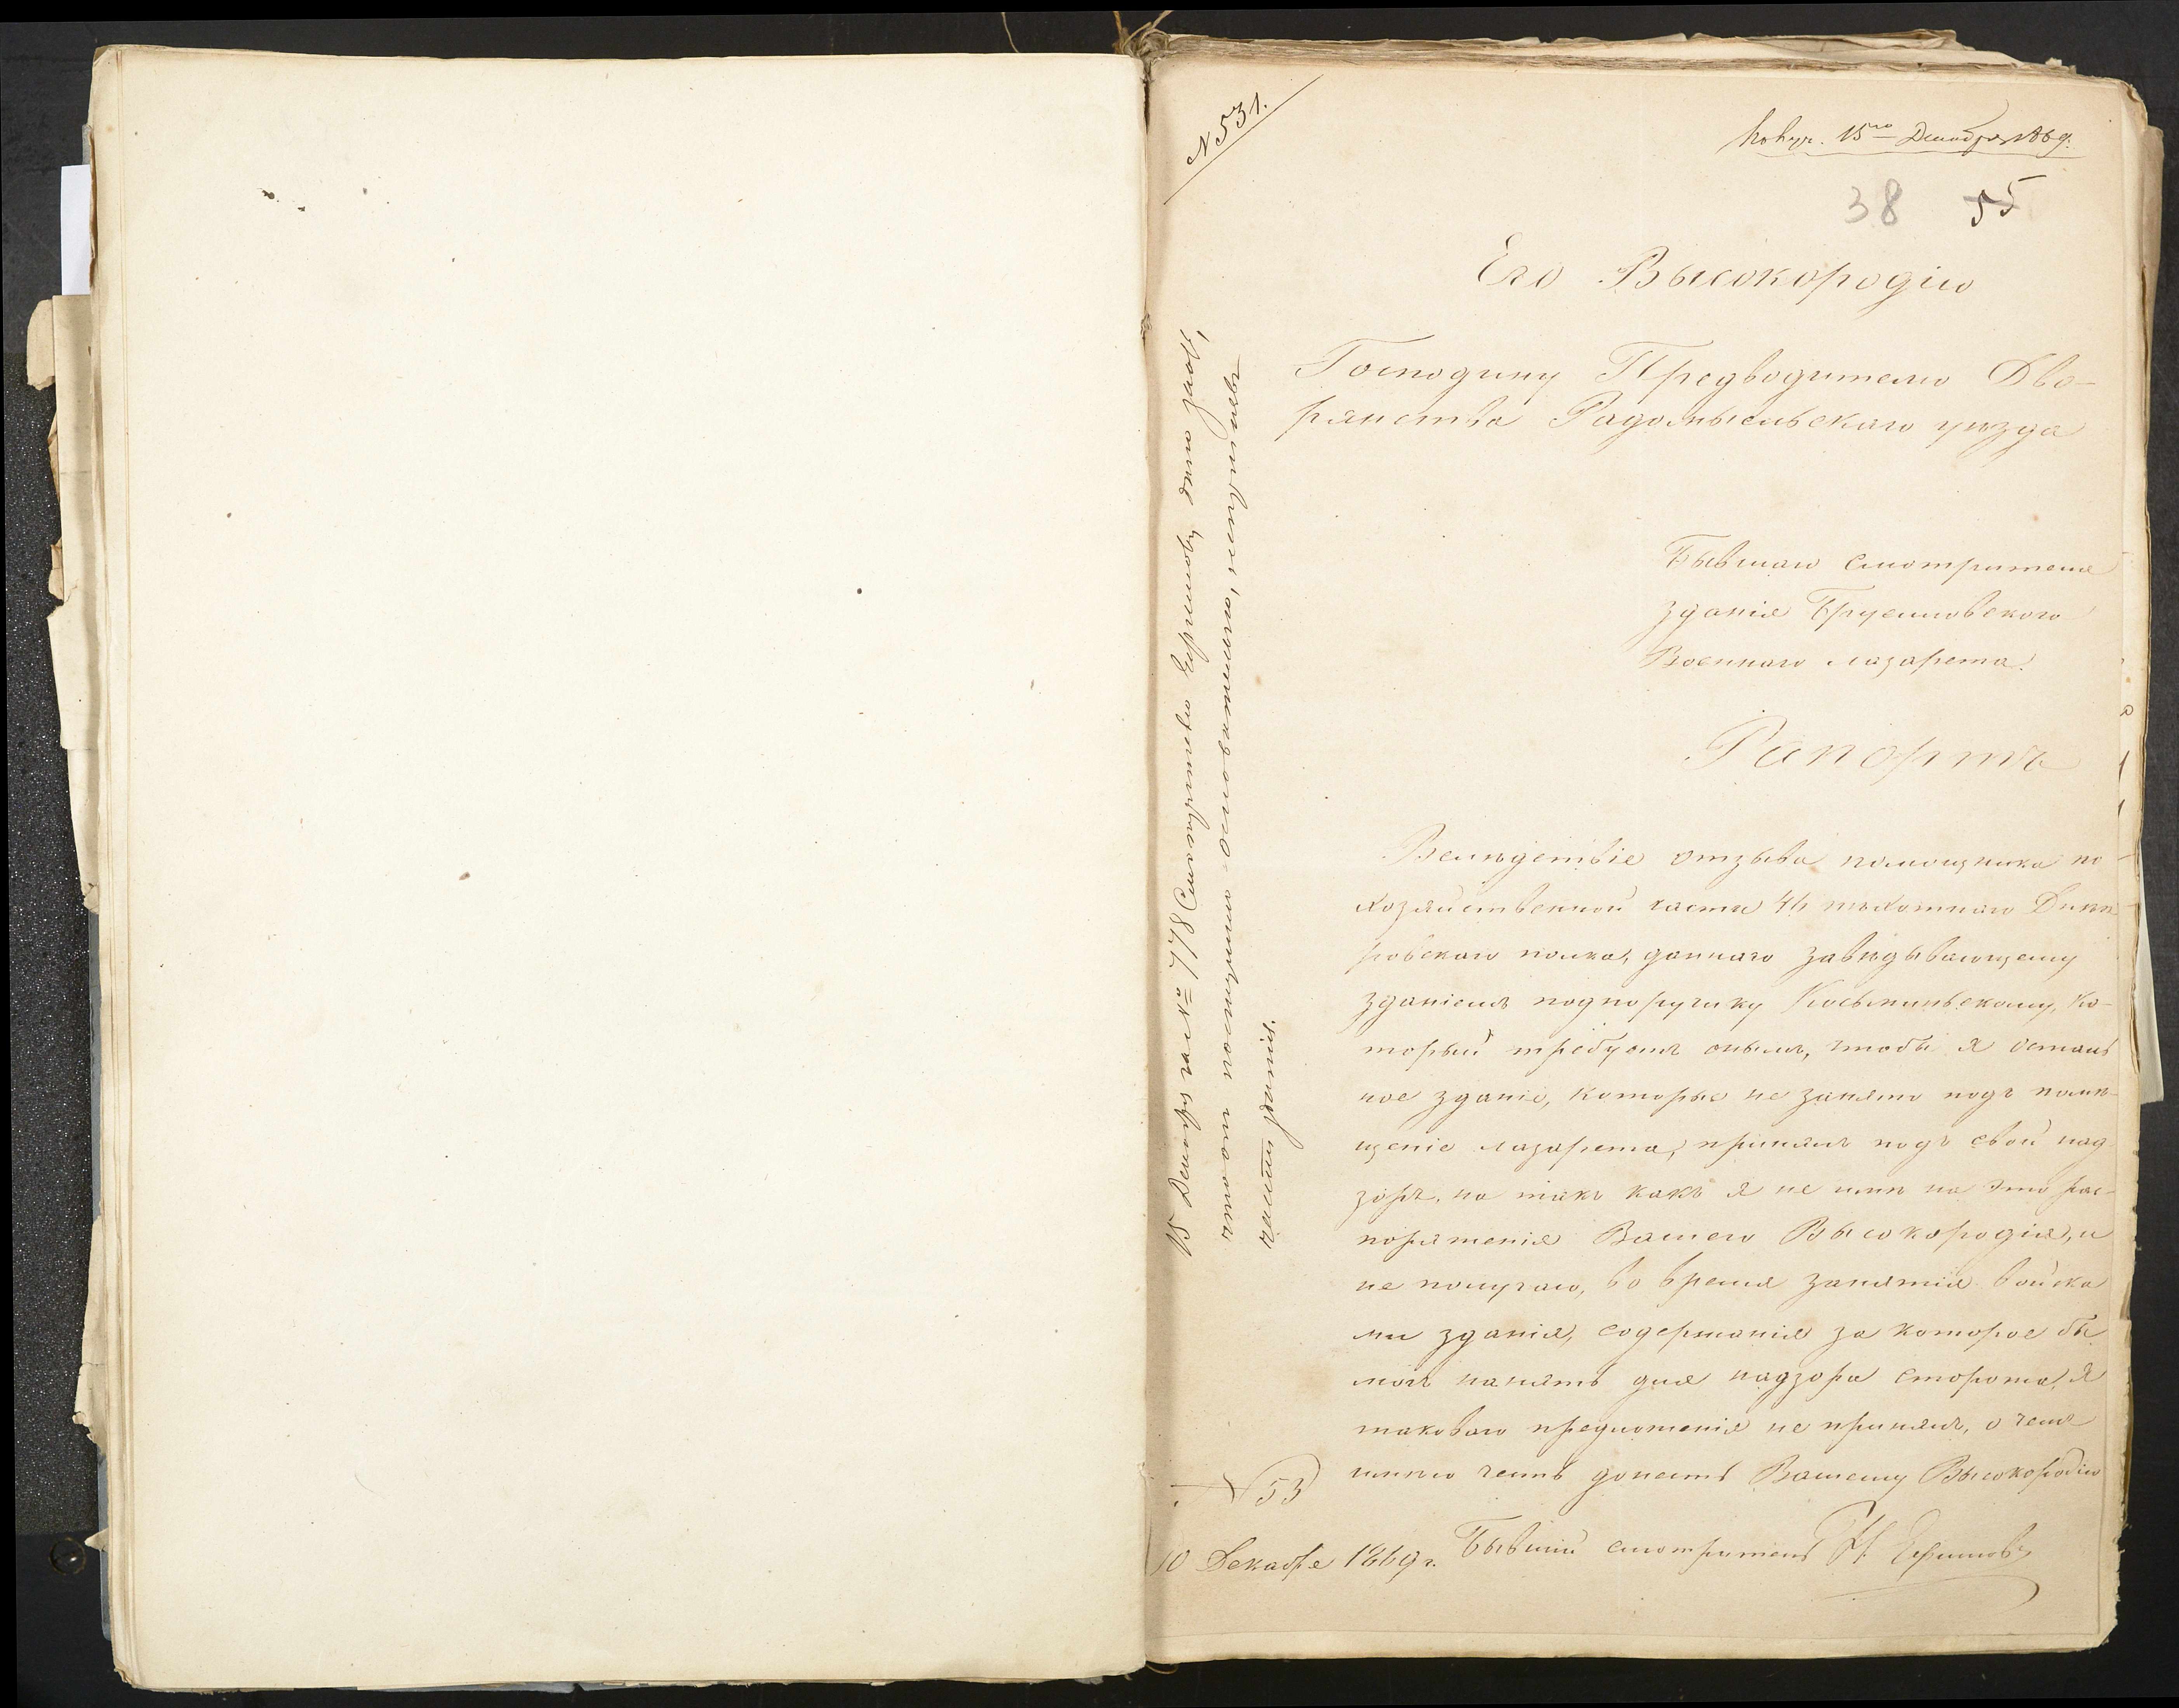 № 531.
Получ. 15го Декабря 1869.
38 55
Его Высокородію
Господину Предводителю Дво-
рянства Радомысльскаго уѣзда
Бывшаго смотрителя
зданія Брусиловскаго
Военнаго лазарета.
Рапортъ
Вслѣдствіе отзыва помощника по
хозяйственной части 46 пѣхотнаго Днѣп-
ровскаго полка, даннаго завѣдывающему
зданіемъ подпоручику Косьминьскому, ко-
торый требуетъ онымъ, чтобы я осталь
ное зданіе, которые не занято подъ помѣ-
щеніе лазарета, принялъ подъ свой над-
зоръ, но такъ какъ я не имѣ на это рас-
поряженія Вашего Высокородія, и
не получаю, во время занятія войска
ми зданія, содержанія за которое бы
могъ нанять для надзора сторожа, я
таковаго предложенія не принялъ, о чемъ
имѣю честь донесть Вашему Высокородію
№ 53
10 Декабря 1869 г. Бывшій смотритель Н. Ефимовъ
15 Декабря за № 778 Смотрителю Ефимову дано знать,
что онъ поступилъ основательно, непринявъ
части зданія.